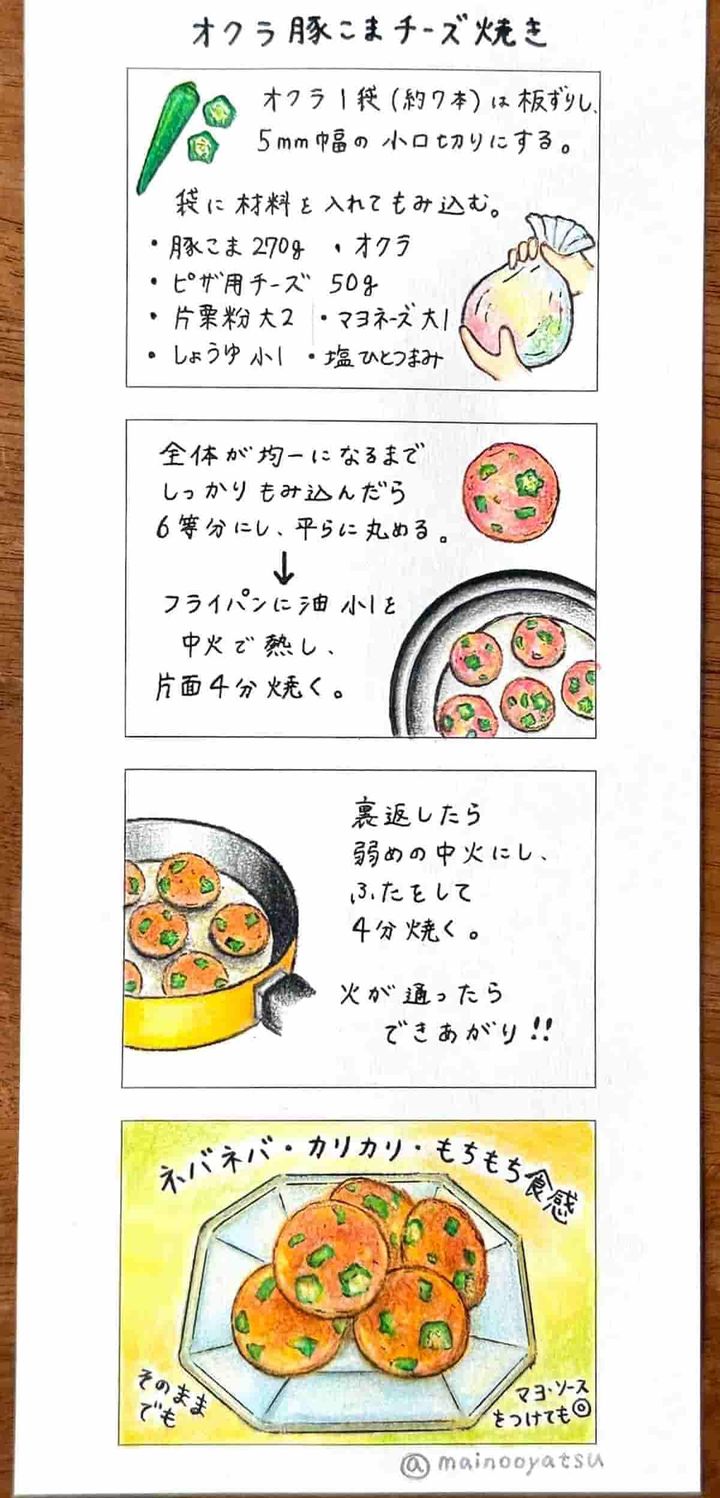 オクラ豚こまチーズ焼き
オクラ1袋(約7本)は板ずりし、
5mm幅の小口切りにする。
袋に材料を入れてもみ込む。
・豚こま270g ・オクラ
・ピザ用チーズ 50g
・片栗粉大2 ・マヨネーズ大1
・しょうゆ小1 ・塩ひとつまみ
全体が均一になるまで
しっかりもみ込んだら
6等分にし、平らに丸める。
↓
フライパンに油小1を
中火で熱し、
片面4分焼く。
裏返したら
弱めの中火にし、
ふたをして
4分焼く。
火が通ったら
できあがり!!
ネバネバ・カリカリ・もちもち食感
そのまま
でも
マヨ・ソース
をつけても◎
@mainooyatsu